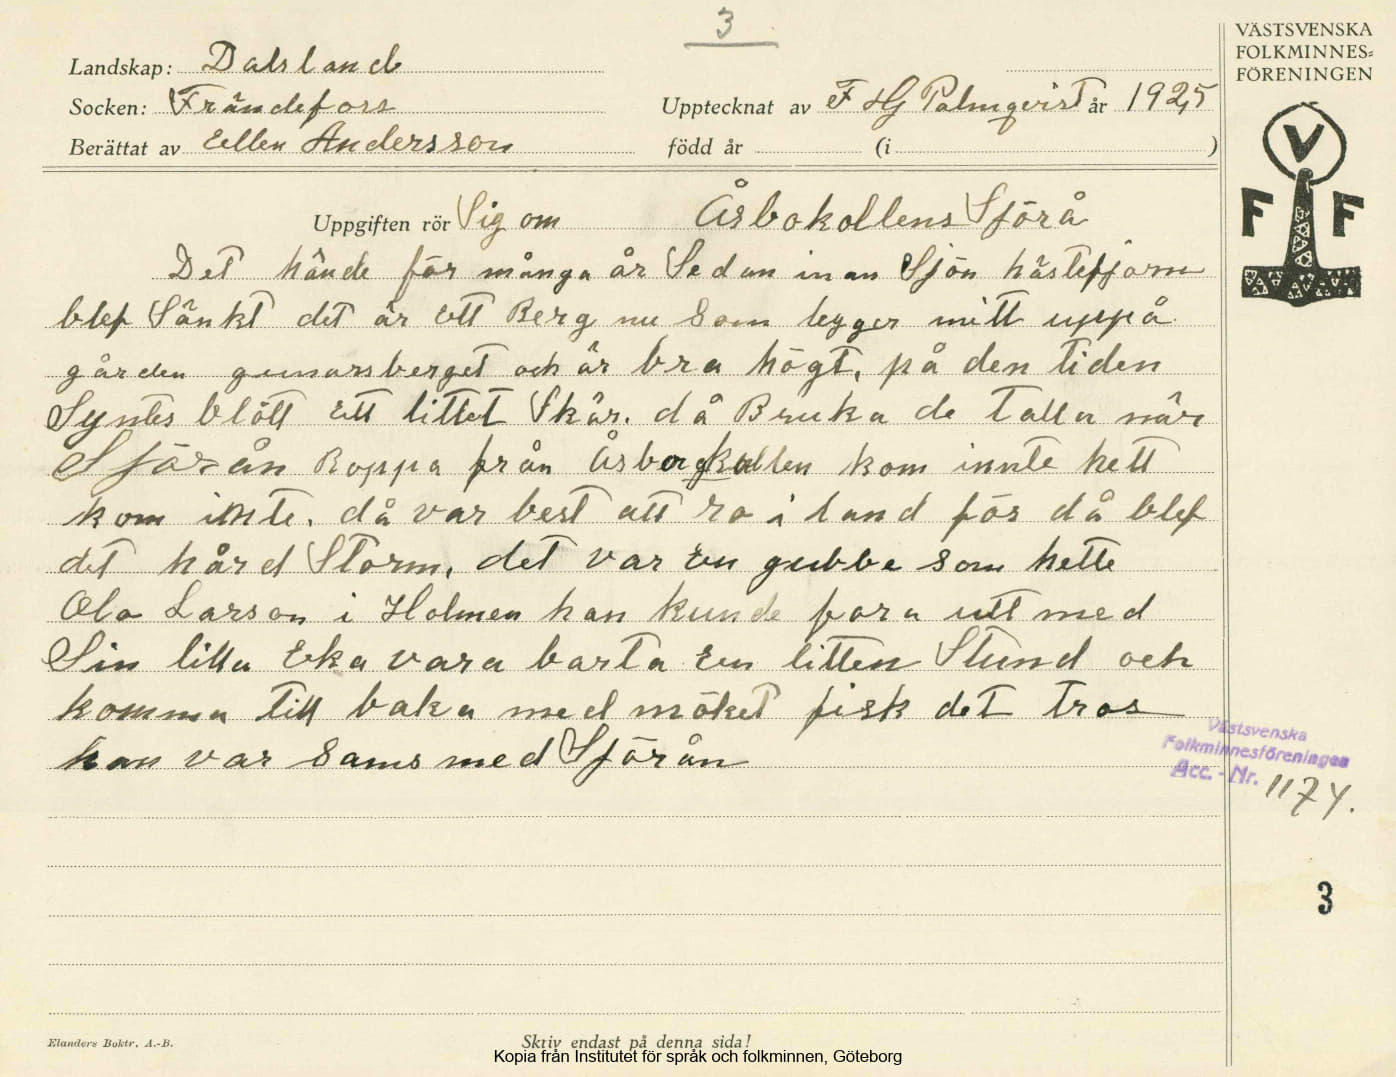 3
VÄSTSVENSKA
FOLKMINNES=
FÖRENINGEN
V
F F
Landskap: Dalsland
Socken: Frändefors
Upptecknat av F HG Palmqvist år 1925
Berättat av Eellen Andersson
född år (i )
Uppgiften rör Sig om Åsbokollens Sförå
Det hände för många år Sedan inan Sjön hästefjorn
blef Sänkt det är Ett Berg nu Som legger mitt uppå
gården gunarsberget och är bra högt, på den tiden
Syntes blött Ett littet Skär. då Bruka de talla när
Sförån Roppa från Åsbergkollen kom innte hett
kom inte. då var best att ro i land för då blef
det hård Storm, det var En gubbe som hette
Ola Larson i Holmen han kunde fara utt med
Sin lilla Eka vara barta En litten Stund och
komma till baka med möket fisk det tros
han var Sams med Sförån
Västsvenska
Folkminnesföreningen
Acc. - Nr. 1174.
3
Elanders Boktr. A.-B.
Skriv endast på denna sida!
Kopia från Institutet för språk och folkminnen, Göteborg